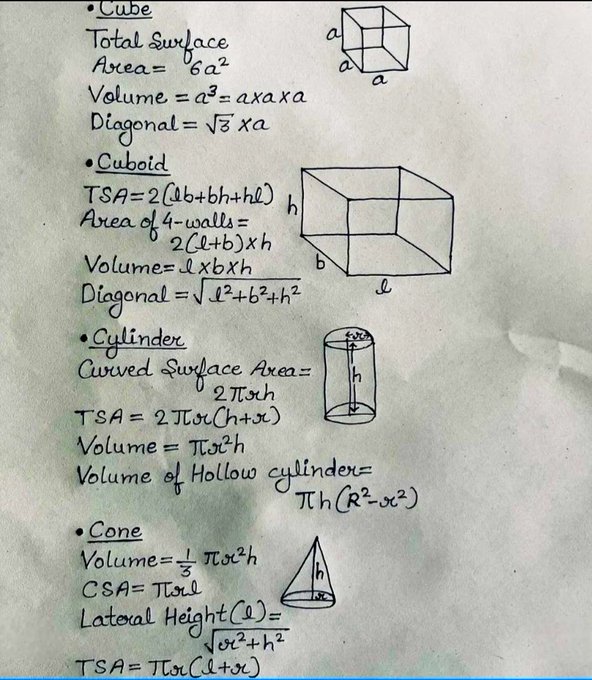 • Cube
Total Surface
Area = 6a²
a
a
a
Volume = a³ = axaxa
Diagonal = √3 xa
• Cuboid
TSA = 2(lb+bh+hl)
h
Area of 4-walls =
2(l+b)xh
b
Volume = lxbxh
l
Diagonal = √l²+b²+h²
• Cylinder
r
Curved Surface Area =
h
2πrh
TSA = 2πr(h+r)
Volume = πr²h
Volume of Hollow cylinder =
πh(R²-r²)
• Cone
Volume = 1/3 πr²h
h
CSA = πrl
r
Lateral Height (l) =
√r²+h²
TSA = πr(l+r)